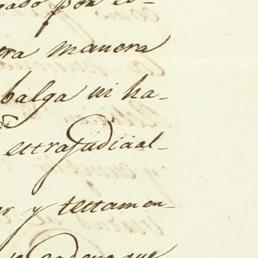 por
ra manera
balga ni ha-
extrajudicial-
y testamen-
que